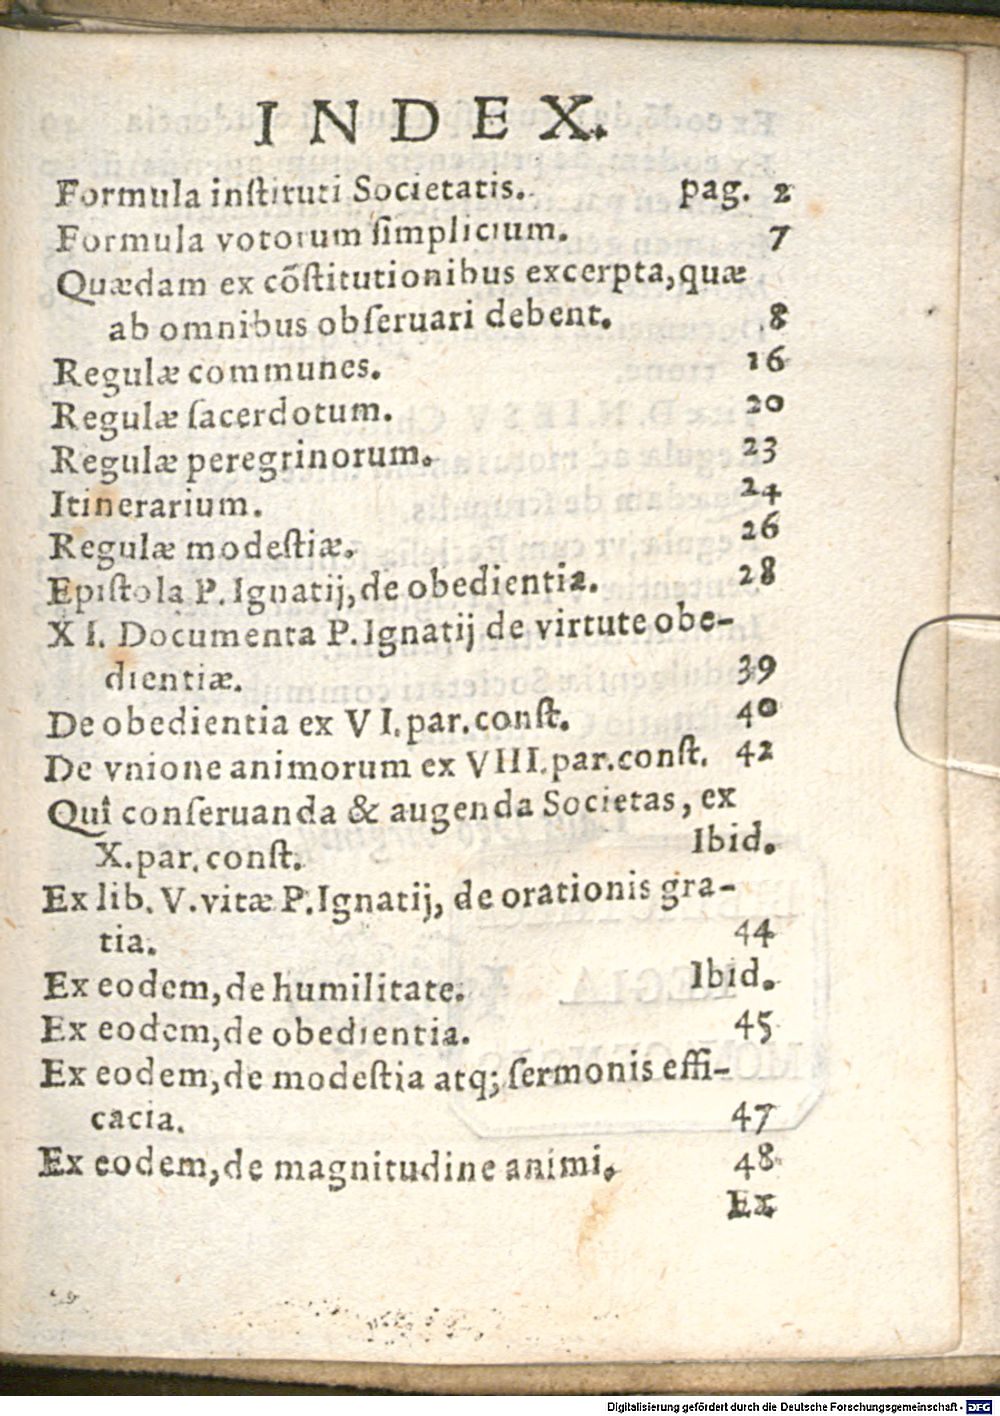 INDEX.
Formula inſtituti Societatis. pag. 2
Formula votorum ſimplicium. 7
Quædam ex cõſtitutionibus excerpta, quæ
ab omnibus obſeruari debent. 8
Regulæ communes. 16
Regulæ ſacerdotum. 20
Regulæ peregrinorum. 23
Itinerarium. 24
Regulæ modeſtiæ. 26
Epiſtola P. Ignatij, de obedientia. 28
XI. Documenta P. Ignatij de virtute obe-
dientiæ. 39
De obedientia ex VI. par. conſt. 40
De vnione animorum ex VIII. par. conſt. 42
Quî conſeruanda & augenda Societas, ex
X. par. conſt. Ibid.
Ex lib. V. vitæ P. Ignatij, de orationis gra-
tia. 44
Ex eodem, de humilitate. Ibid.
Ex eodem, de obedientia. 45
Ex eodem, de modeſtia atq; ſermonis effi-
cacia. 47
Ex eodem, de magnitudine animi. 48
Ex
Digitalisierung gefördert durch die Deutsche Forschungsgemeinschaft - DFG